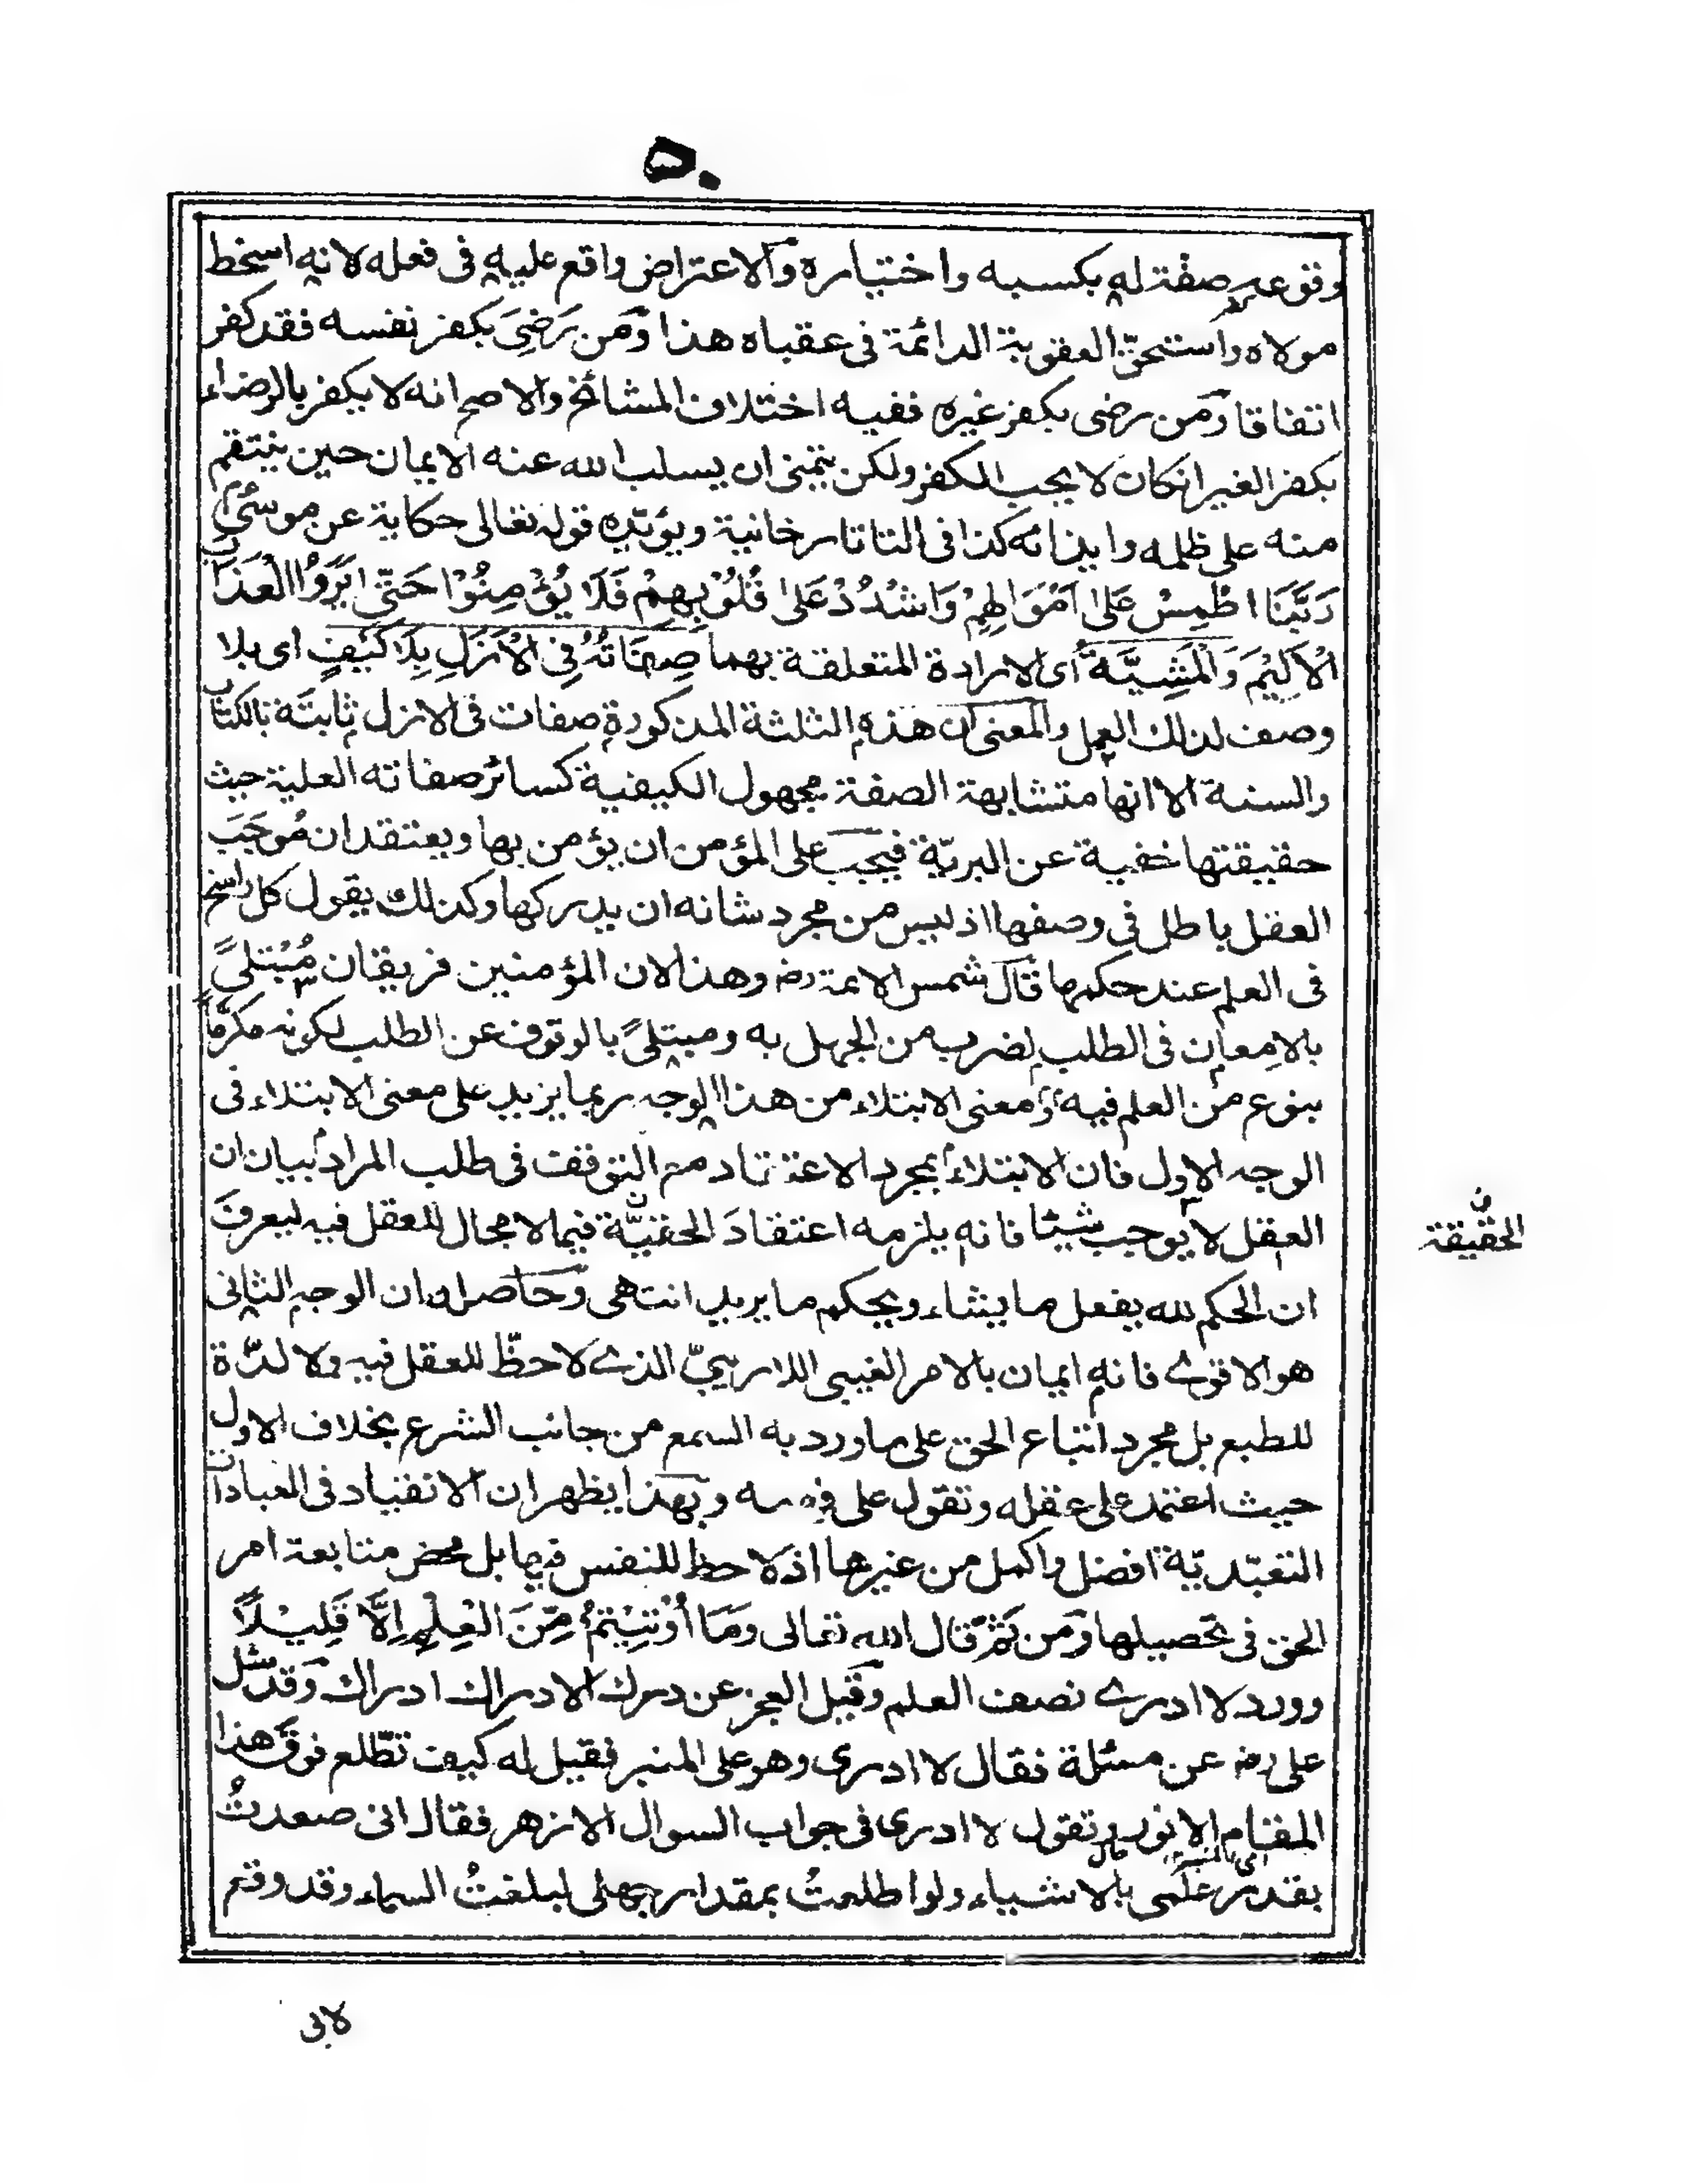 ٥٠
وقوعه صفة له بكسبه واختياره والاعتراض واقع عليه فى فعله لانه اسخط
مولاه واستحق العقوبة الدائمة فى عقباه هذا ومن رَضِىَ بكفر نفسه فقد كفر
اتفاقا ومن رضى بكفر غيره ففيه اختلاف المشائخ والاصح انه لا يكفر بالرضاء
بكفر الغير ان كان لا يحب الكفر ولكن يتمنى ان يسلب الله عنه الايمان حين ينتقم
منه على ظلمه وايذائه كذا فى التاتارخانية ويؤيده قوله تعالى حكاية عن موسىٰ
رَبَّنَا اطْمِسْ عَلىٰ اَمْوَالِهِمْ وَاشْدُدْ عَلىٰ قُلُوْبِهِمْ فَلَا يُؤْمِنُوْا حَتّٰى يَرَوُا الْعَذَابَ
الْاَلِيْمَ وَالْمَشِيَّةُ اى الارادة المتعلقة بهما صِفَاتُهُ فِى الْاَزَلِ بِلَا كَيْفٍ اى بلا
وصف لذلك العمل والمعنى ان هذه الثلثة المذكورة صفات فى الازل ثابتة بالكتاب
والسنة الا انها متشابهة الصفة مجهول الكيفية كسائر صفاته العلية حيث
حقيقتها خفية عن البريّة فيجب على المؤمن ان يؤمن بها ويعتقد ان مُوجَبَ
العقل باطل فى وصفها اذ ليس من مجرد شانه ان يدركها وكذلك يقول كل راسخ
فى العلم عند حكمها قال شمس الائمة رضـ وهذا لان المؤمنين فريقان مُبْتلىً
بالامعان فى الطلب لضرب من الجهل به ومبتلىً بالوقوف عن الطلب لكونه مكرّماً
بنوع من العلم فيه ومعنى الابتلاء من هذا الوجه ربما يزيد على معنى الابتلاء فى
الوجه الاول فان الابتلاء بمجرد الاعتقاد مع التوقف فى طلب المراد بيان ان
العقل لا يوجب شيئا فانه يلزمه اعتقادَ الحقيّة فيما لا مجال للعقل فيه ليعرفَ
ن
الحقيقة
ان الحكم لله يفعل ما يشاء ويحكم ما يريد انتهى وحاصله ان الوجه الثانى
هو الاقوى فانه ايمان بالامر الغيبى اللاريبىّ الذى لا حظّ للعقل فيه ولا لذّة
للطبع بل مجرد اتباع الحق على ما ورد به السمع من جانب الشرع بخلاف الاول
حيث اعتمد على عقله وتقول على فهمه وبهذا يظهر ان الانقياد فى العبادات
التعبّديّة افضل واكمل من غيرها اذ لا حظ للنفس فيها بل محض متابعة امر
الحق فى تحصيلها ومن ثمّ قال الله تعالى وَمَا اُوْتِيْتُمْ مِّنَ الْعِلْمِ اِلَّا قَلِيْلًا
وورد لا ادرى نصف العلم وقيل العجز عن درك الادراك ادراك وقد سئل
على رضـ عن مسئلة فقال لا ادرى وهو على المنبر فقيل له كيف تطّلع فوق هذا
المقام الانور وتقول لا ادرى فى جواب السوال الازهر فقال انى صعدتُ
اى المنبر
بقدر علمى بالاشياء ولو اطلعتُ بمقدار جهلى لبلغتُ السماء وقد وقع
لابى